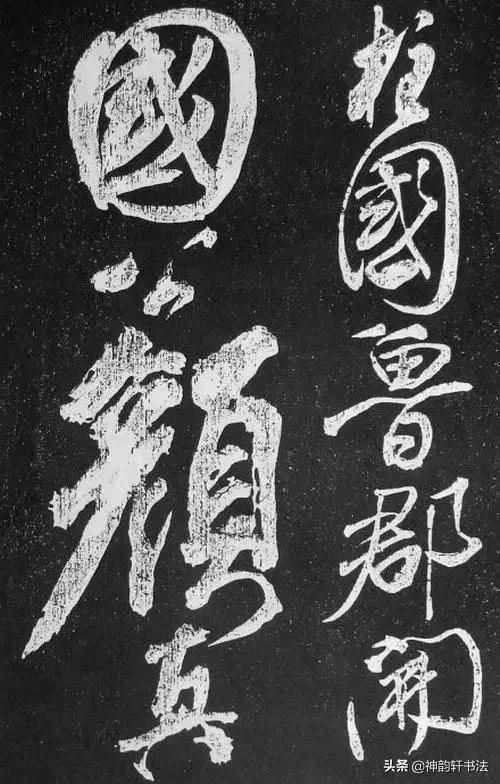 柱國魯郡開
國公顏真
头条@神韵轩书法